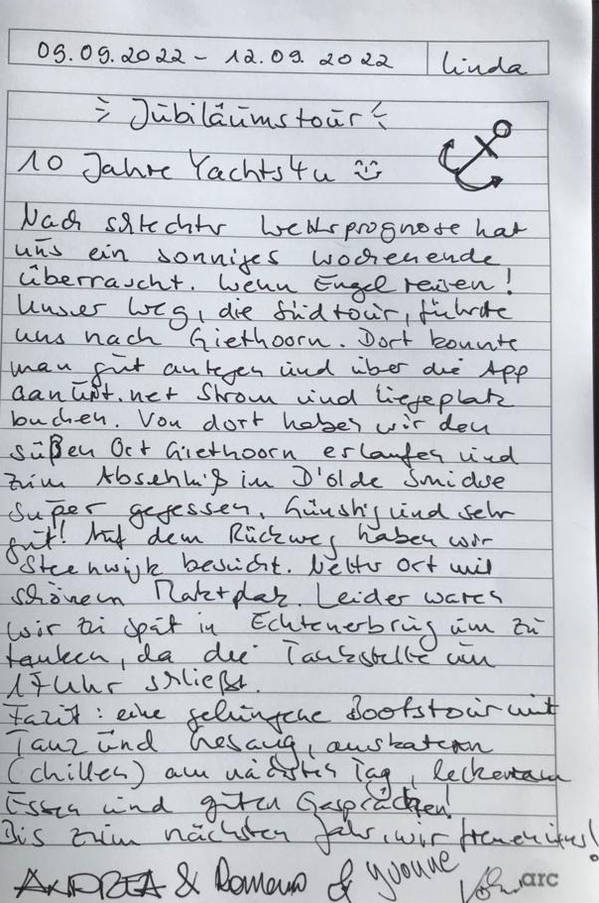 09.09.2022 - 12.09.2022 Linda
Jubiläumstour
10 Jahre Yachts4u
Nach schlechter Wetterprognose hat
uns ein sonniges Wochenende
überrascht. Wenn Engel reisen!
Unser Weg, die Südtour, führte
uns nach Giethoorn. Dort konnte
man gut anlegen und über die App
aanUit.net Strom und Liegeplatz
buchen. Von dort haben wir den
süßen Ort Giethoorn erlaufen und
zum Abschluß im D'olde Smidse
super gegessen. Günstig und sehr
gut! Auf dem Rückweg haben wir
Steenwijk besucht. Netter Ort mit
schönem Marktplatz. Leider waren
wir zu spät in Echtenerbrug um zu
tanken, da die Tankstelle um
17 Uhr schließt.
Fazit: eine gelungene Bootstour mit
Tanz und Gesang, auskatern
(chillen) am nächsten Tag, leckerem
Essen und guten Gesprächen!
Bis zum nächsten Jahr, wir freuen uns!
ANDREA & Romano & Yvonne
arc